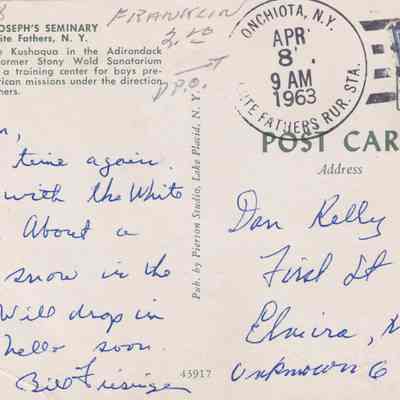 FRANKLIN
2.10
D.P.O.
OSEPH'S SEMINARY
ite Fathers, N. Y.
e Kushaqua in the Adirondack
ormer Stony Wold Sanatorium
a training center for boys pre-
rican missions under the direction
hers.
time again.
with the White
About a
snow in the
Will drop in
hello soon.
Bill
Pub. by Pierson Studio, Lake Placid, N. Y.
45917
ONCHIOTA, N.Y.
APR
8
9 AM
1963
ITE FATHERS RUR. STA.
POST CAR
Address
Don Kelly
First St
Elmira, N
Unknown 6